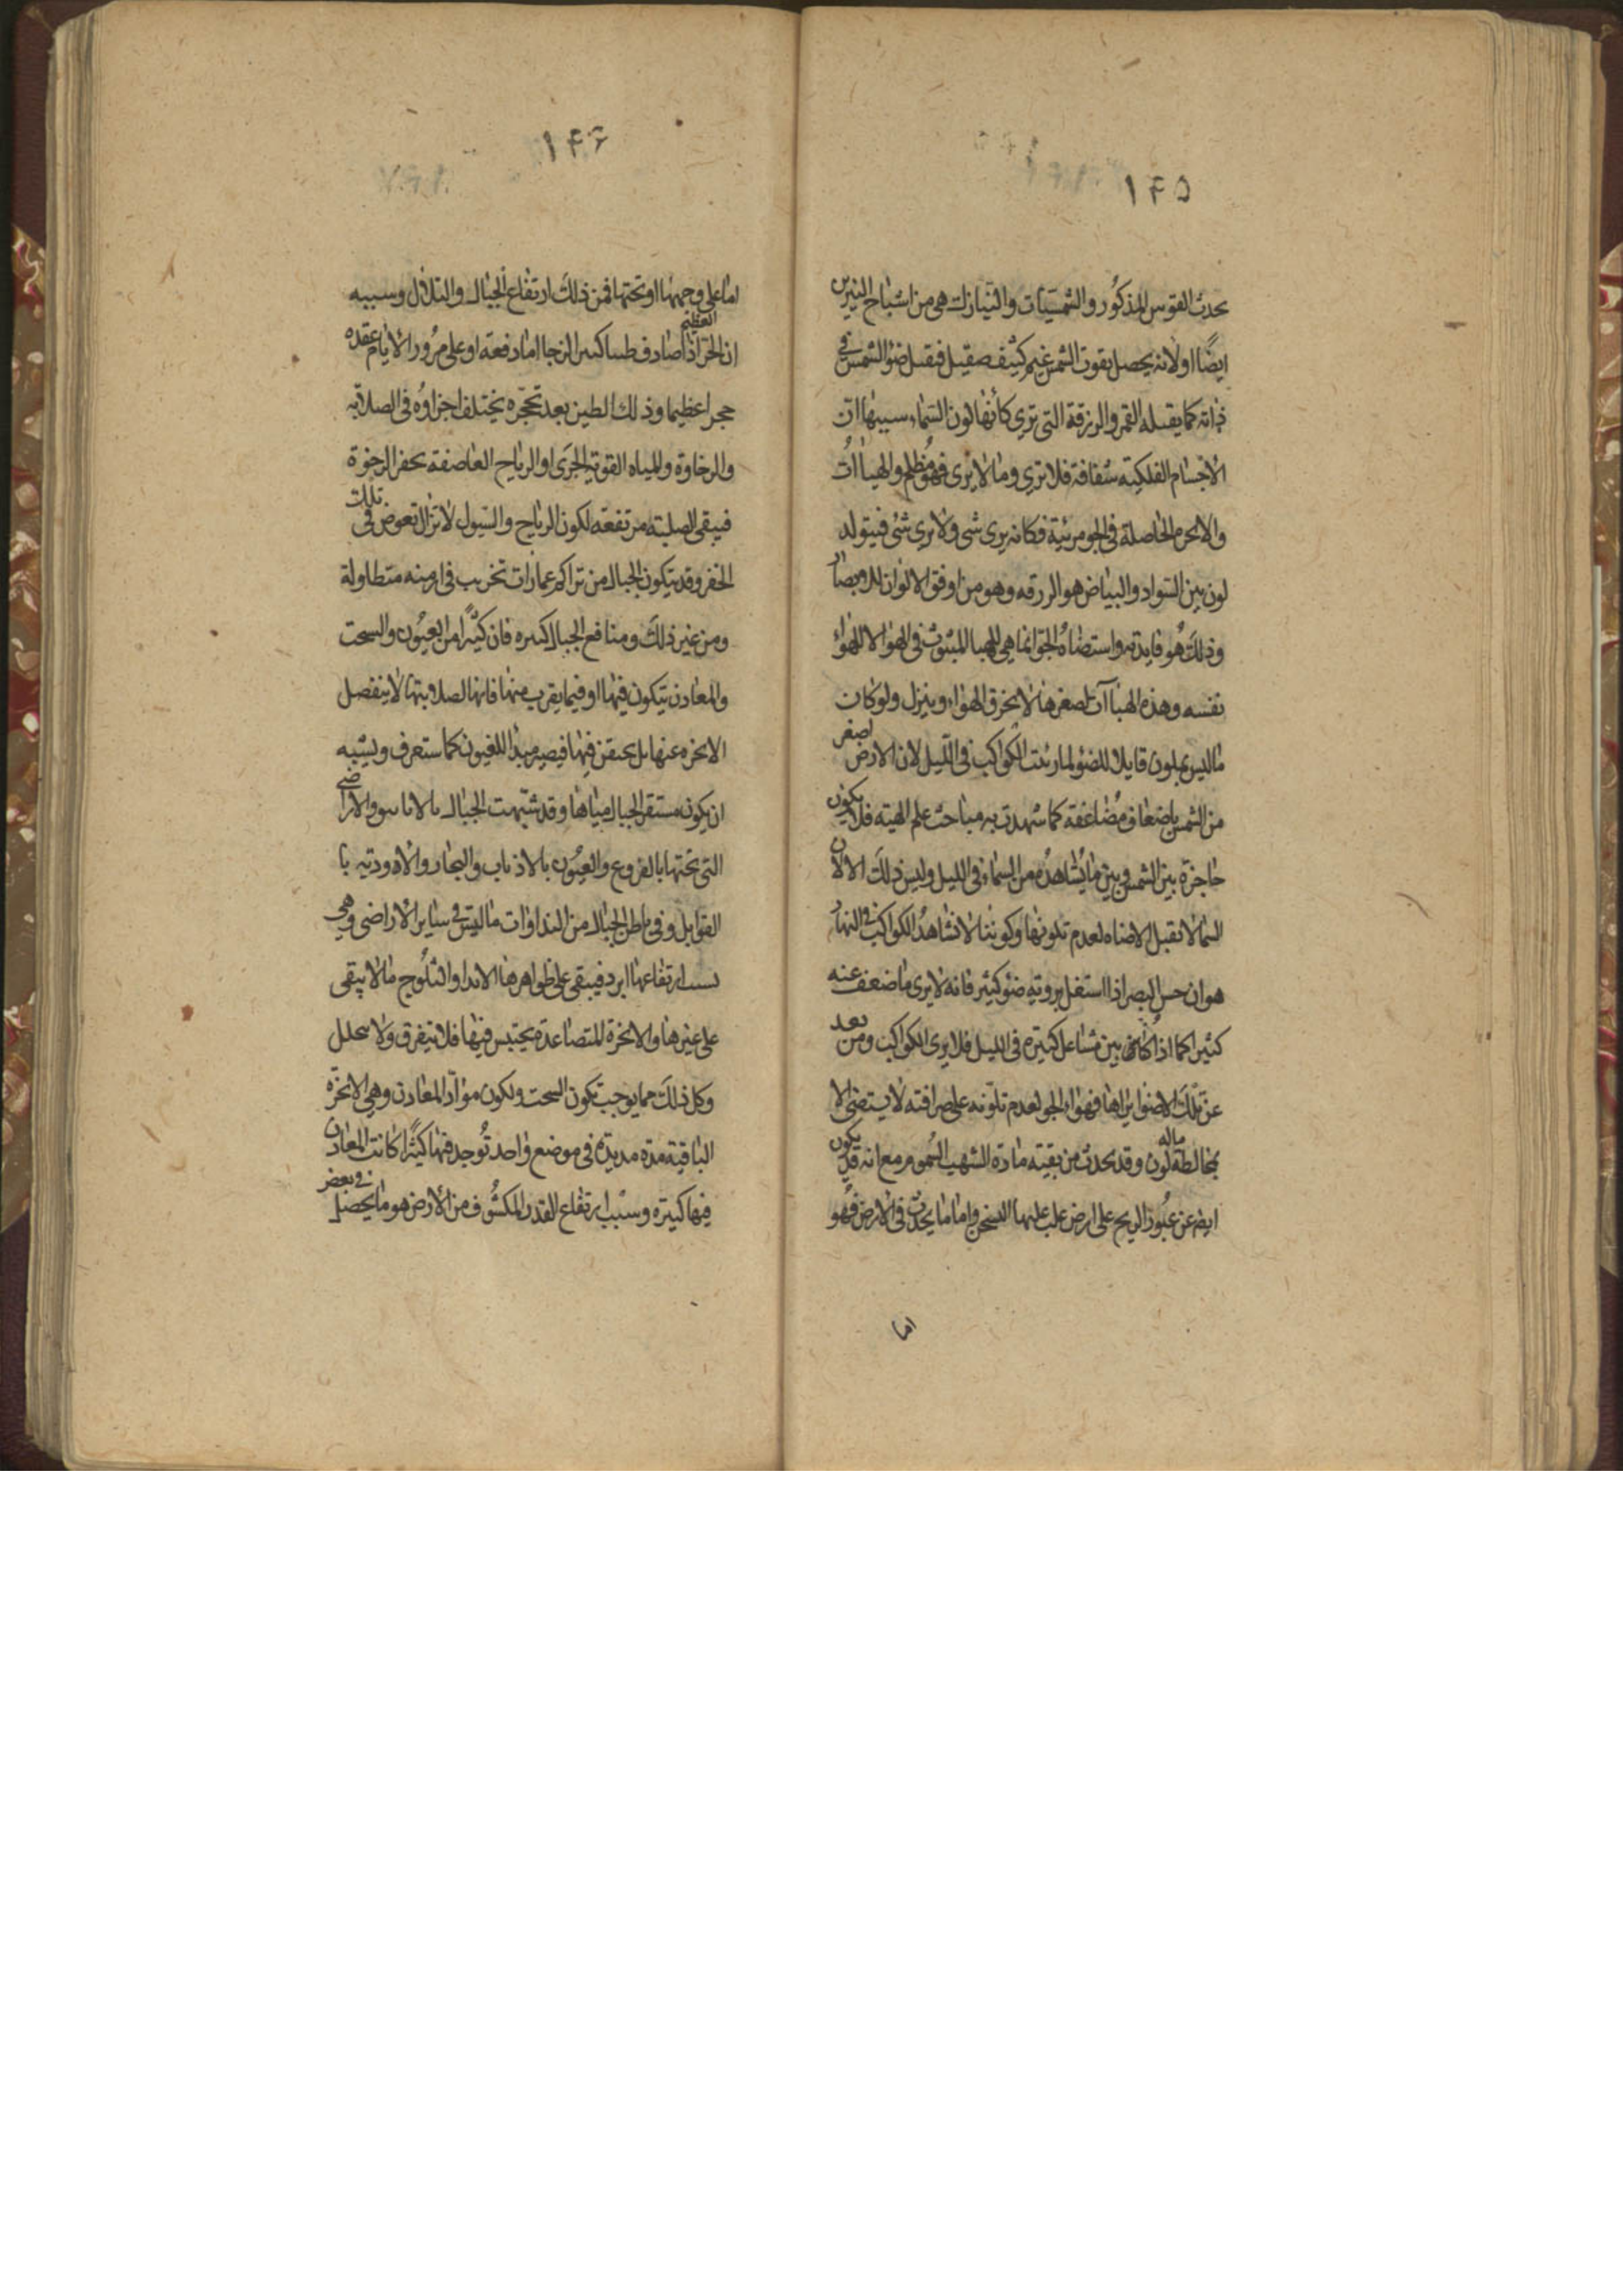 ١٤٥
يحدث القوس المذكور والشمسيات والنيازك هى من اشباح النيرين
ايضًا اولانه يحصل بقرب الشمس غيم كثيف صقيل فقبل ضو الشمس فى
ذاته كما يقبله القمر والزرقة التى ترى كأنها لون السماء سببها ان
الاجسام الفلكية شفافة فلا ترى وما لا يرى فهو مظلم والهباات
والابخرة الحاصلة فى الجو مرئية فكانه يرى شى ولا يرى شئ فيتولد
لون بين السواد والبياض هو الزرقه وهو من اوفق الالوان للابصار
وذلك هو فايدته واستضاه الجو انما هى للهبا المبثوث فى الهوا لا للهواء
نفسه وهذه الهباات لصغرها لا تخرق الهواء وينزل ولو كان
ما ليس بملون قابلا للضؤ لما رئت الكواكب فى الليل لان الارض اصغر
من الشمس باضعاف مضاعفة كما شهدت به مباحث علم الهيته فلا يكون
حاجزة بين الشمس وبين ما يشاهد من السماء فى الليل وليس ذلك الا لان
السما لا تقبل الاضاه لعدم تلونها وكوننا لا نشاهد الكواكب فى النهار
هو ان حس البصر اذا استغل بروية ضؤ كثير فانه لا يرى ما ضعف عنه
كثيرا كما اذا كان بين مشاعل كثيره فى الليل فلا يرى الكواكب ومن بعد
عن تلك الاضوا يراها فهواء الجو لعدم تلونه على صرافته لا يستضئ الا
بمخالطة ماله لون وقد يحدث من بقيته مادة الشهب السموم مع انه قد يكون
ايضا عن عبور الريح على ارض غلب عليها التسخن واما ما يحدث فى الارض فهو
اما
١٤٦
اما على وجهها او تحتها فمن ذلك ارتفاع الجبال والتلال وسببه
ان الحر العظيم اذا صادف طينا كثير الزجا اما دفعة او على مرور الايام عقده
حجرا عظيما وذلك الطين بعد تحجره يختلف اجزاوه فى الصلابه
والرخاوة والمياه القوية الجرى او الرياح العاصفة يحفر الرخوة
فيبقى الصلبة مرتفعه لكون الرياح والسيول لا تزال تغوص فى تلك
الحفر وقد يتكون الجبال من تراكم عمارات تخرب فى ازمنه متطاولة
ومن غير ذلك ومنافع الجبال كثيره فان كثيرًا من العيون والسحب
والمعادن يتكون فيها او فيما يقرب منها فانها لصلابتها لا ينفصل
الابخره عنها بل يحتقن فيها فيصير مبدا للعيون كما ستعرف ويشبه
ان يكون مستقر الجبال مياها وقد شبهت الجبال بالانابيق والاراضى
التى تحتها بالقروع والعيون بالاذناب والبحار والاودية با
القوابل وفى باطن الجبال من النداوات ما ليس فى ساير الاراضى وهى
بسبب ارتفاعها ابرد فيبقى على ظواهرها الاندا والثلوج ما لا يبقى
على غيرها والابخرة المتصاعدة يحتبس فيها فلا يتفرق ولا يتحلل
وكل ذلك مما يوجب تكون السحب وتكون مواد المعادن وهى الابخرة
الباقية مدة مديدة فى موضع واحد توجد فيها كثيرا كانت المعادن
فيها كثيره وسبب ارتفاع القدر المكشوف من الارض هو ما يحصل فى بعض